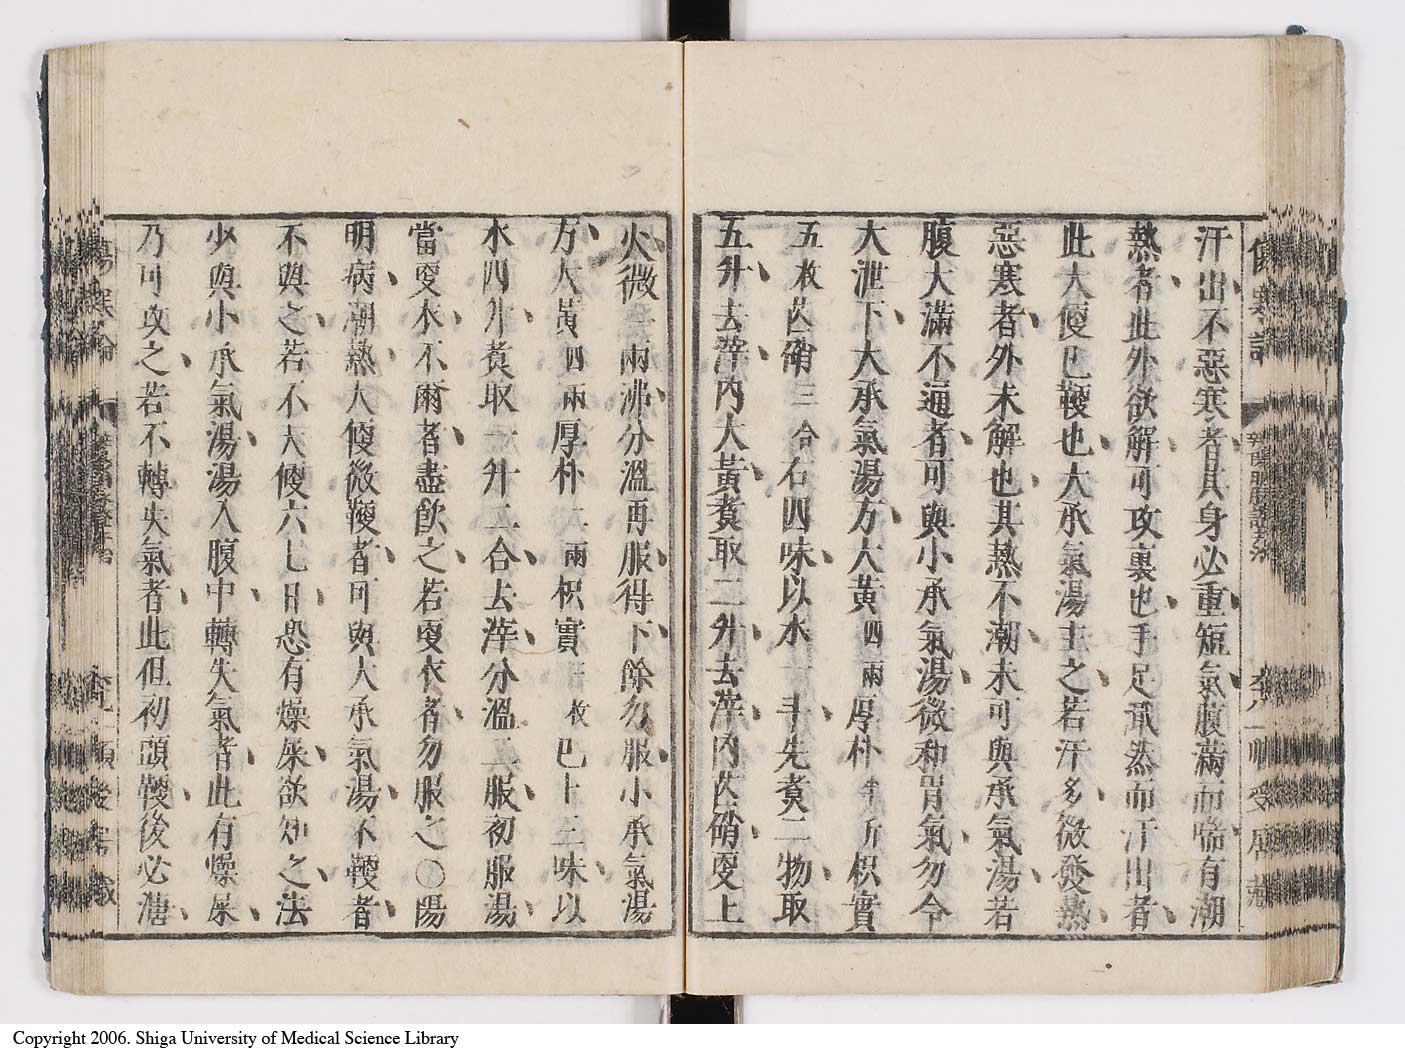 汗出不惡寒者其身必重短氣腹滿而喘有潮
熱者此外欲解可攻裏也手足濈然而汗出者
此大便已鞕也大承氣湯主之若汗多微發熱
惡寒者外未解也其熱不潮未可與承氣湯若
腹大滿不通者可與小承氣湯微和胃氣勿令
大泄下大承氣湯方大黃四兩厚朴半斤枳實
五枚芒硝三合右四味以水一斗先煑二物取
五升去滓內大黃煑取二升去滓內芒硝更上
火微一兩沸分溫再服得下餘勿服小承氣湯
方大黃四兩厚朴二兩枳實三枚已上三味以
水四升煑取一升二合去滓分溫二服初服湯
當更衣不爾者盡飲之若更衣者勿服之○陽
明病潮熱大便微鞕者可與大承氣湯不鞕者
不與之若不大便六七日恐有燥屎欲知之法
少與小承氣湯湯入腹中轉失氣者此有燥屎
乃可攻之若不轉失氣者此但初頭鞕後必溏
Copyright 2006. Shiga University of Medical Science Library